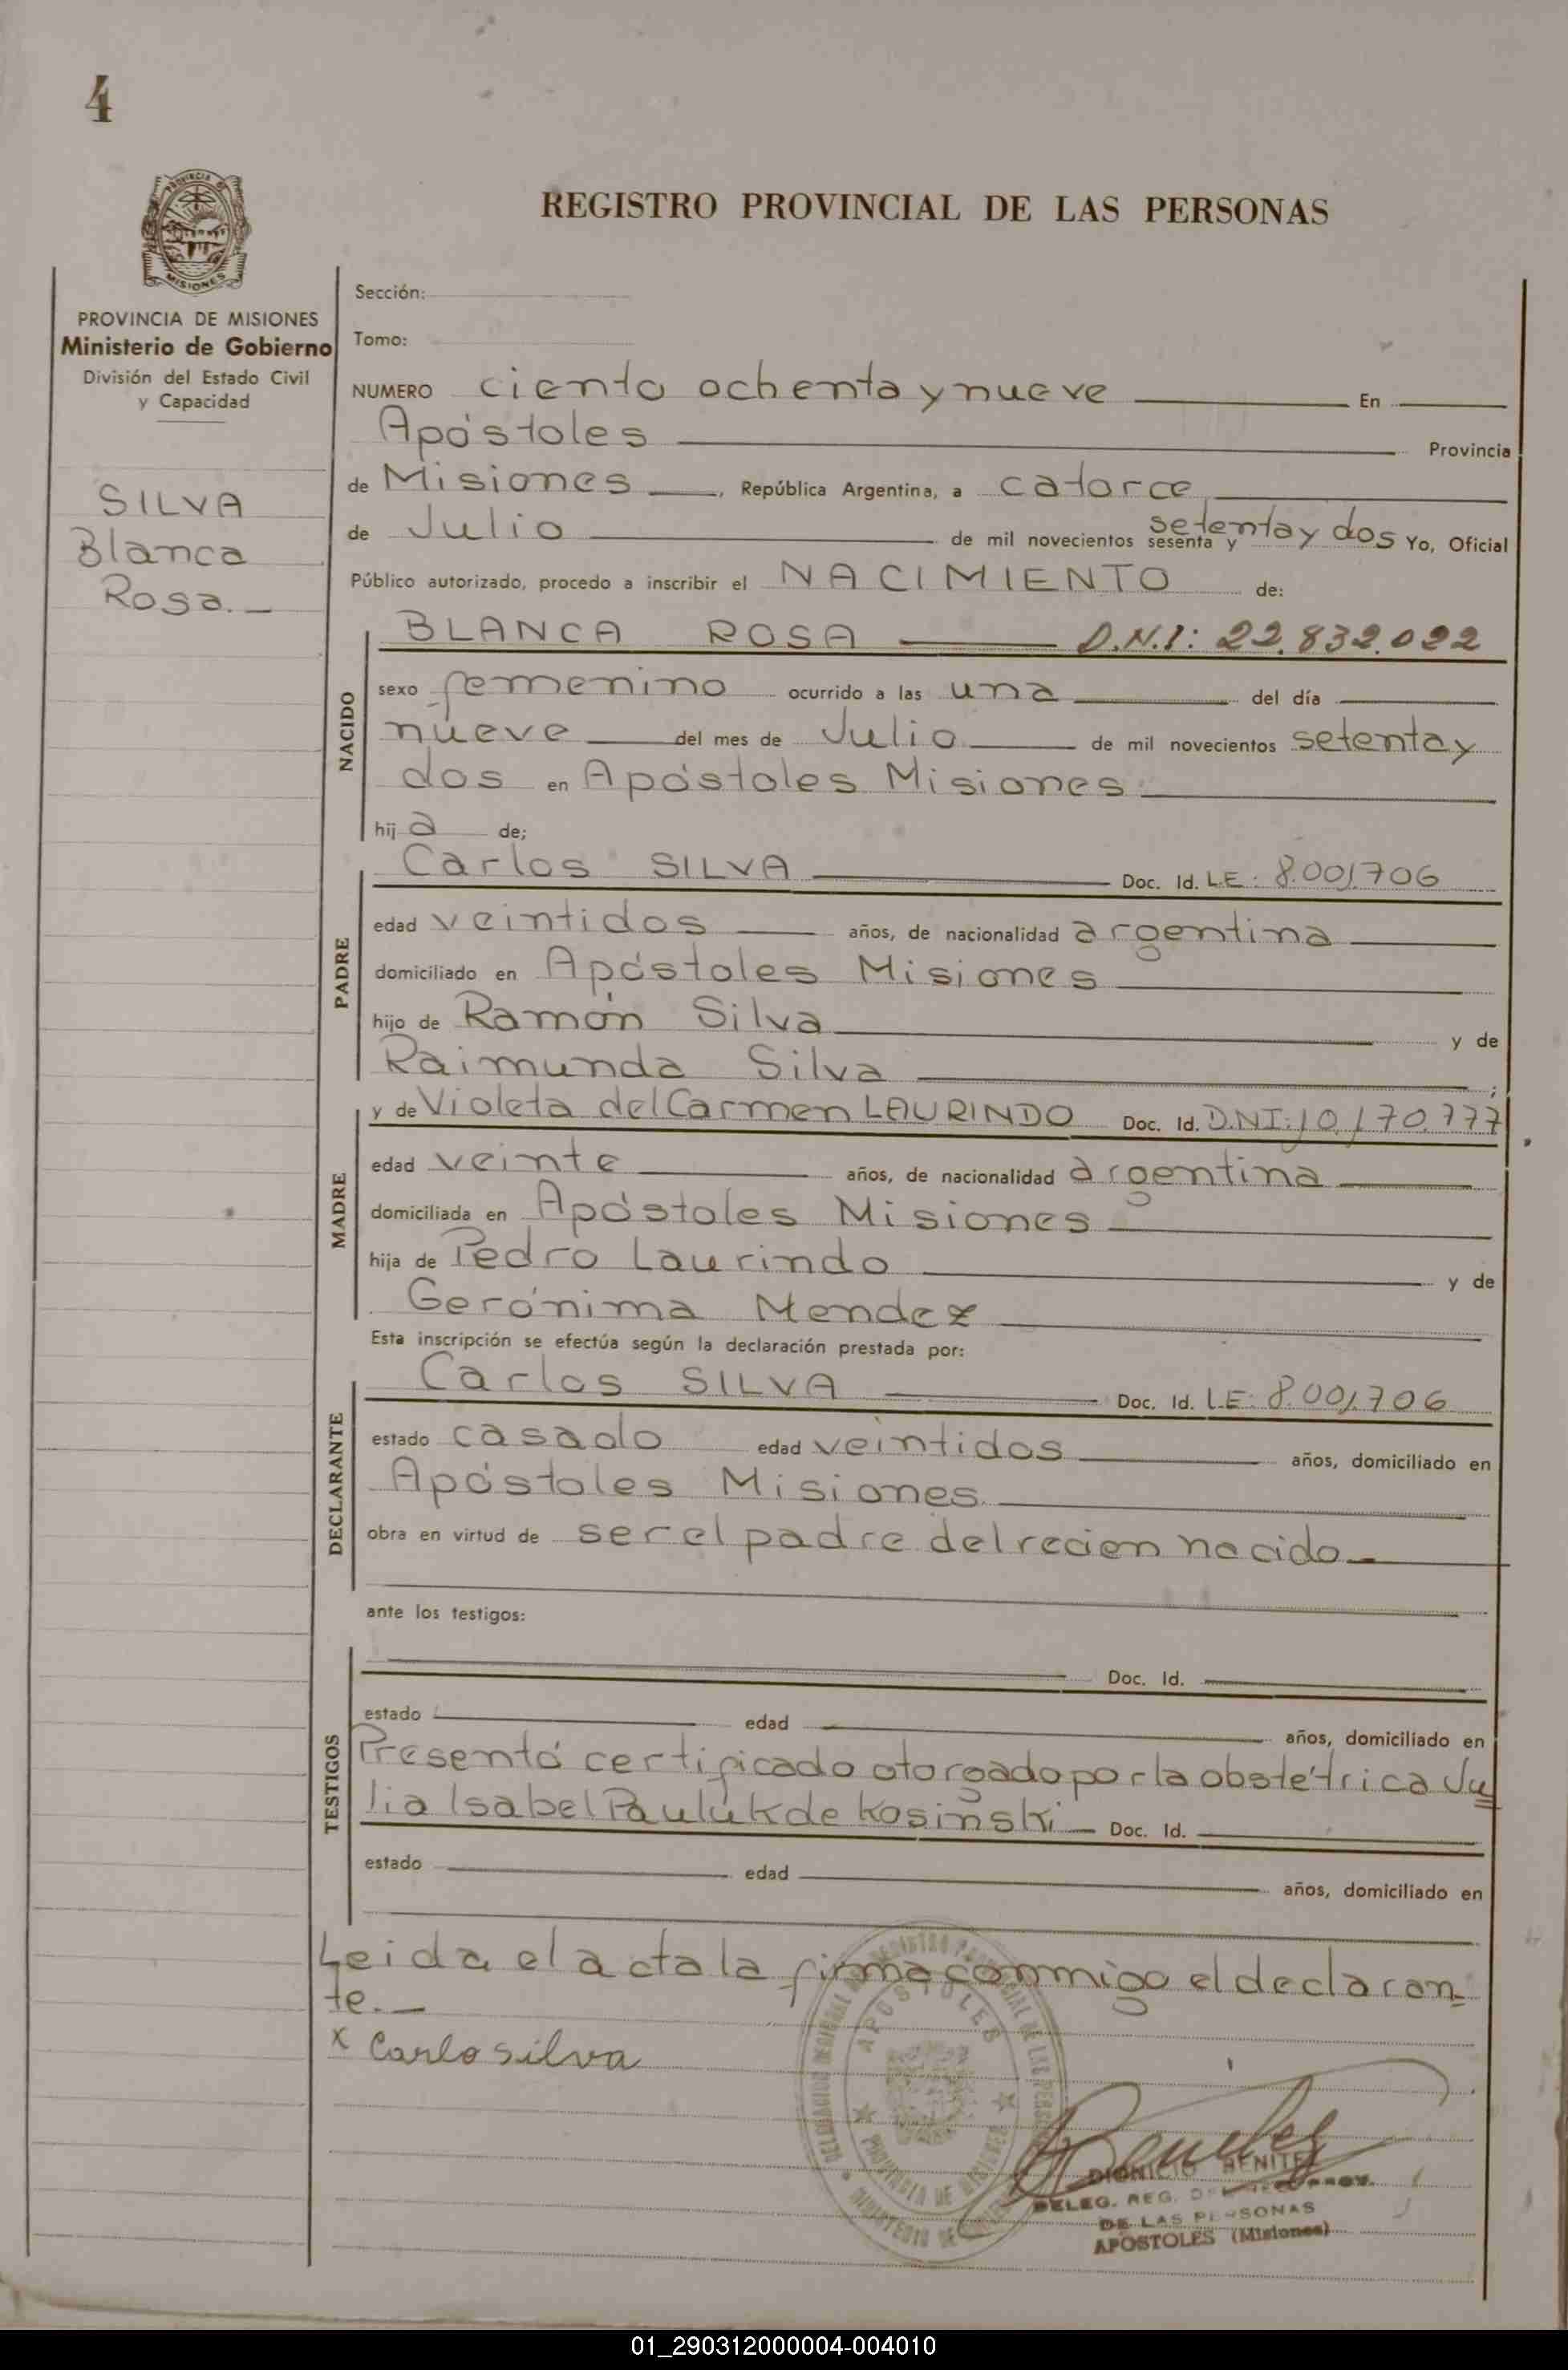 4
PROVINCIA DE
MISIONES
REGISTRO PROVINCIAL DE LAS PERSONAS
PROVINCIA DE MISIONES
Ministerio de Gobierno
División del Estado Civil
y Capacidad
SILVA
Blanca
Rosa.-
Sección:
Tomo:
NUMERO ciento ochenta y nueve En
Apóstoles Provincia
de Misiones, República Argentina, a catorce
de Julio de mil novecientos sesenta y setenta y dos Yo, Oficial
Público autorizado, procedo a inscribir el NACIMIENTO de:
NACIDO
BLANCA ROSA D.N.I: 22.832.022
sexo femenino ocurrido a las una del día
nueve del mes de Julio de mil novecientos setenta y
dos en Apóstoles Misiones
hij a de;
PADRE
Carlos SILVA Doc. Id. LE: 8.001.706
edad veintidos años, de nacionalidad argentina
domiciliado en Apóstoles Misiones
hijo de Ramón Silva y de
Raimunda Silva ;
MADRE
y de Violeta del Carmen LAURINDO Doc. Id. D.N.I: 10.170.777
edad veinte años, de nacionalidad argentina
domiciliada en Apóstoles Misiones
hija de Pedro Laurindo y de
Gerónima Mendez
Esta inscripción se efectúa según la declaración prestada por:
DECLARANTE
Carlos SILVA Doc. Id. L.E: 8.001.706
estado casado edad veintidos años, domiciliado en
Apóstoles Misiones.
obra en virtud de ser el padre del recien nacido.-
ante los testigos:
TESTIGOS
Doc. Id.
estado edad años, domiciliado en
Presentó certificado otorgado por la obstétrica Ju=
lia Isabel Pauluk de Kosinski - Doc. Id.
estado edad años, domiciliado en
Leida el acta la firma conmigo el declaran=
te.-
x Carlo silva
APOSTOLES
PROVINCIA DE MISIONES
DIONICIO BENITEZ
DELEG. REG. DEL REG. PROV.
DE LAS PERSONAS
APOSTOLES (Misiones)
01_290312000004-004010